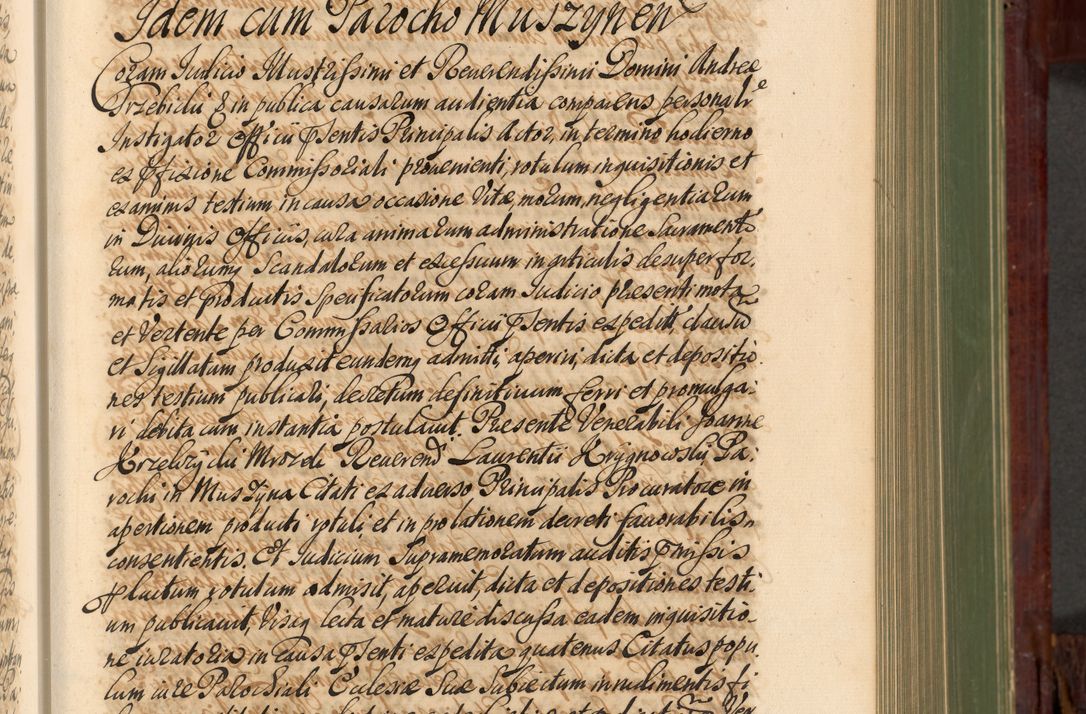 Idem cum Parocho Muszynen
Coram Judicio Illustrissimi et Reverendissimi Domini Andreæ
Trzebicki & in publica causarum audientia comparens personalr
Instigator Officii Psentis Principalis Actor, in termino hodierno
ex Pfixione Commissoriali provenienti, rotulum inquisitionis et
examinis testium in causa occasione Vitæ, morum, negligentiarum
in Divinis Officiis, cura animarum administratione Sacramento
rum, aliorumq Scandalorum et excessuum in articulis desuper for
matis et productis Specificatorum coram Judicio præsenti mota
et Vertente per Commissarios Officii Psentis expedit clausu
et Sigillatum produxit eundemq admitti, aperiri, dicta et depositio
nes testium publicari, decretum definitivum ferri et promulga
ri debita cum instantia postulavit. Presente Venerabili Joanne
Mrozek Reverend Laurentii Krygnowsky Pa
rochi in Muszyna Citati ex adverso Principalis Procuratore in
apertionem producti rotuli et in prolationem decreti favorabilis
consentientis. Et Judicium Supramemoratum auditis Pmissis
Plucitum rotulum admisit, aperuit, dicta et depositiones testi
um publicavit, Visaq lecta et mature discussa eadem inquisitio
ne iuratoria in causa Psenti expedita quatenus Citatus popu
lum iure Parochiali Ecclesiæ Suæ Subiectum in rudimentis fi